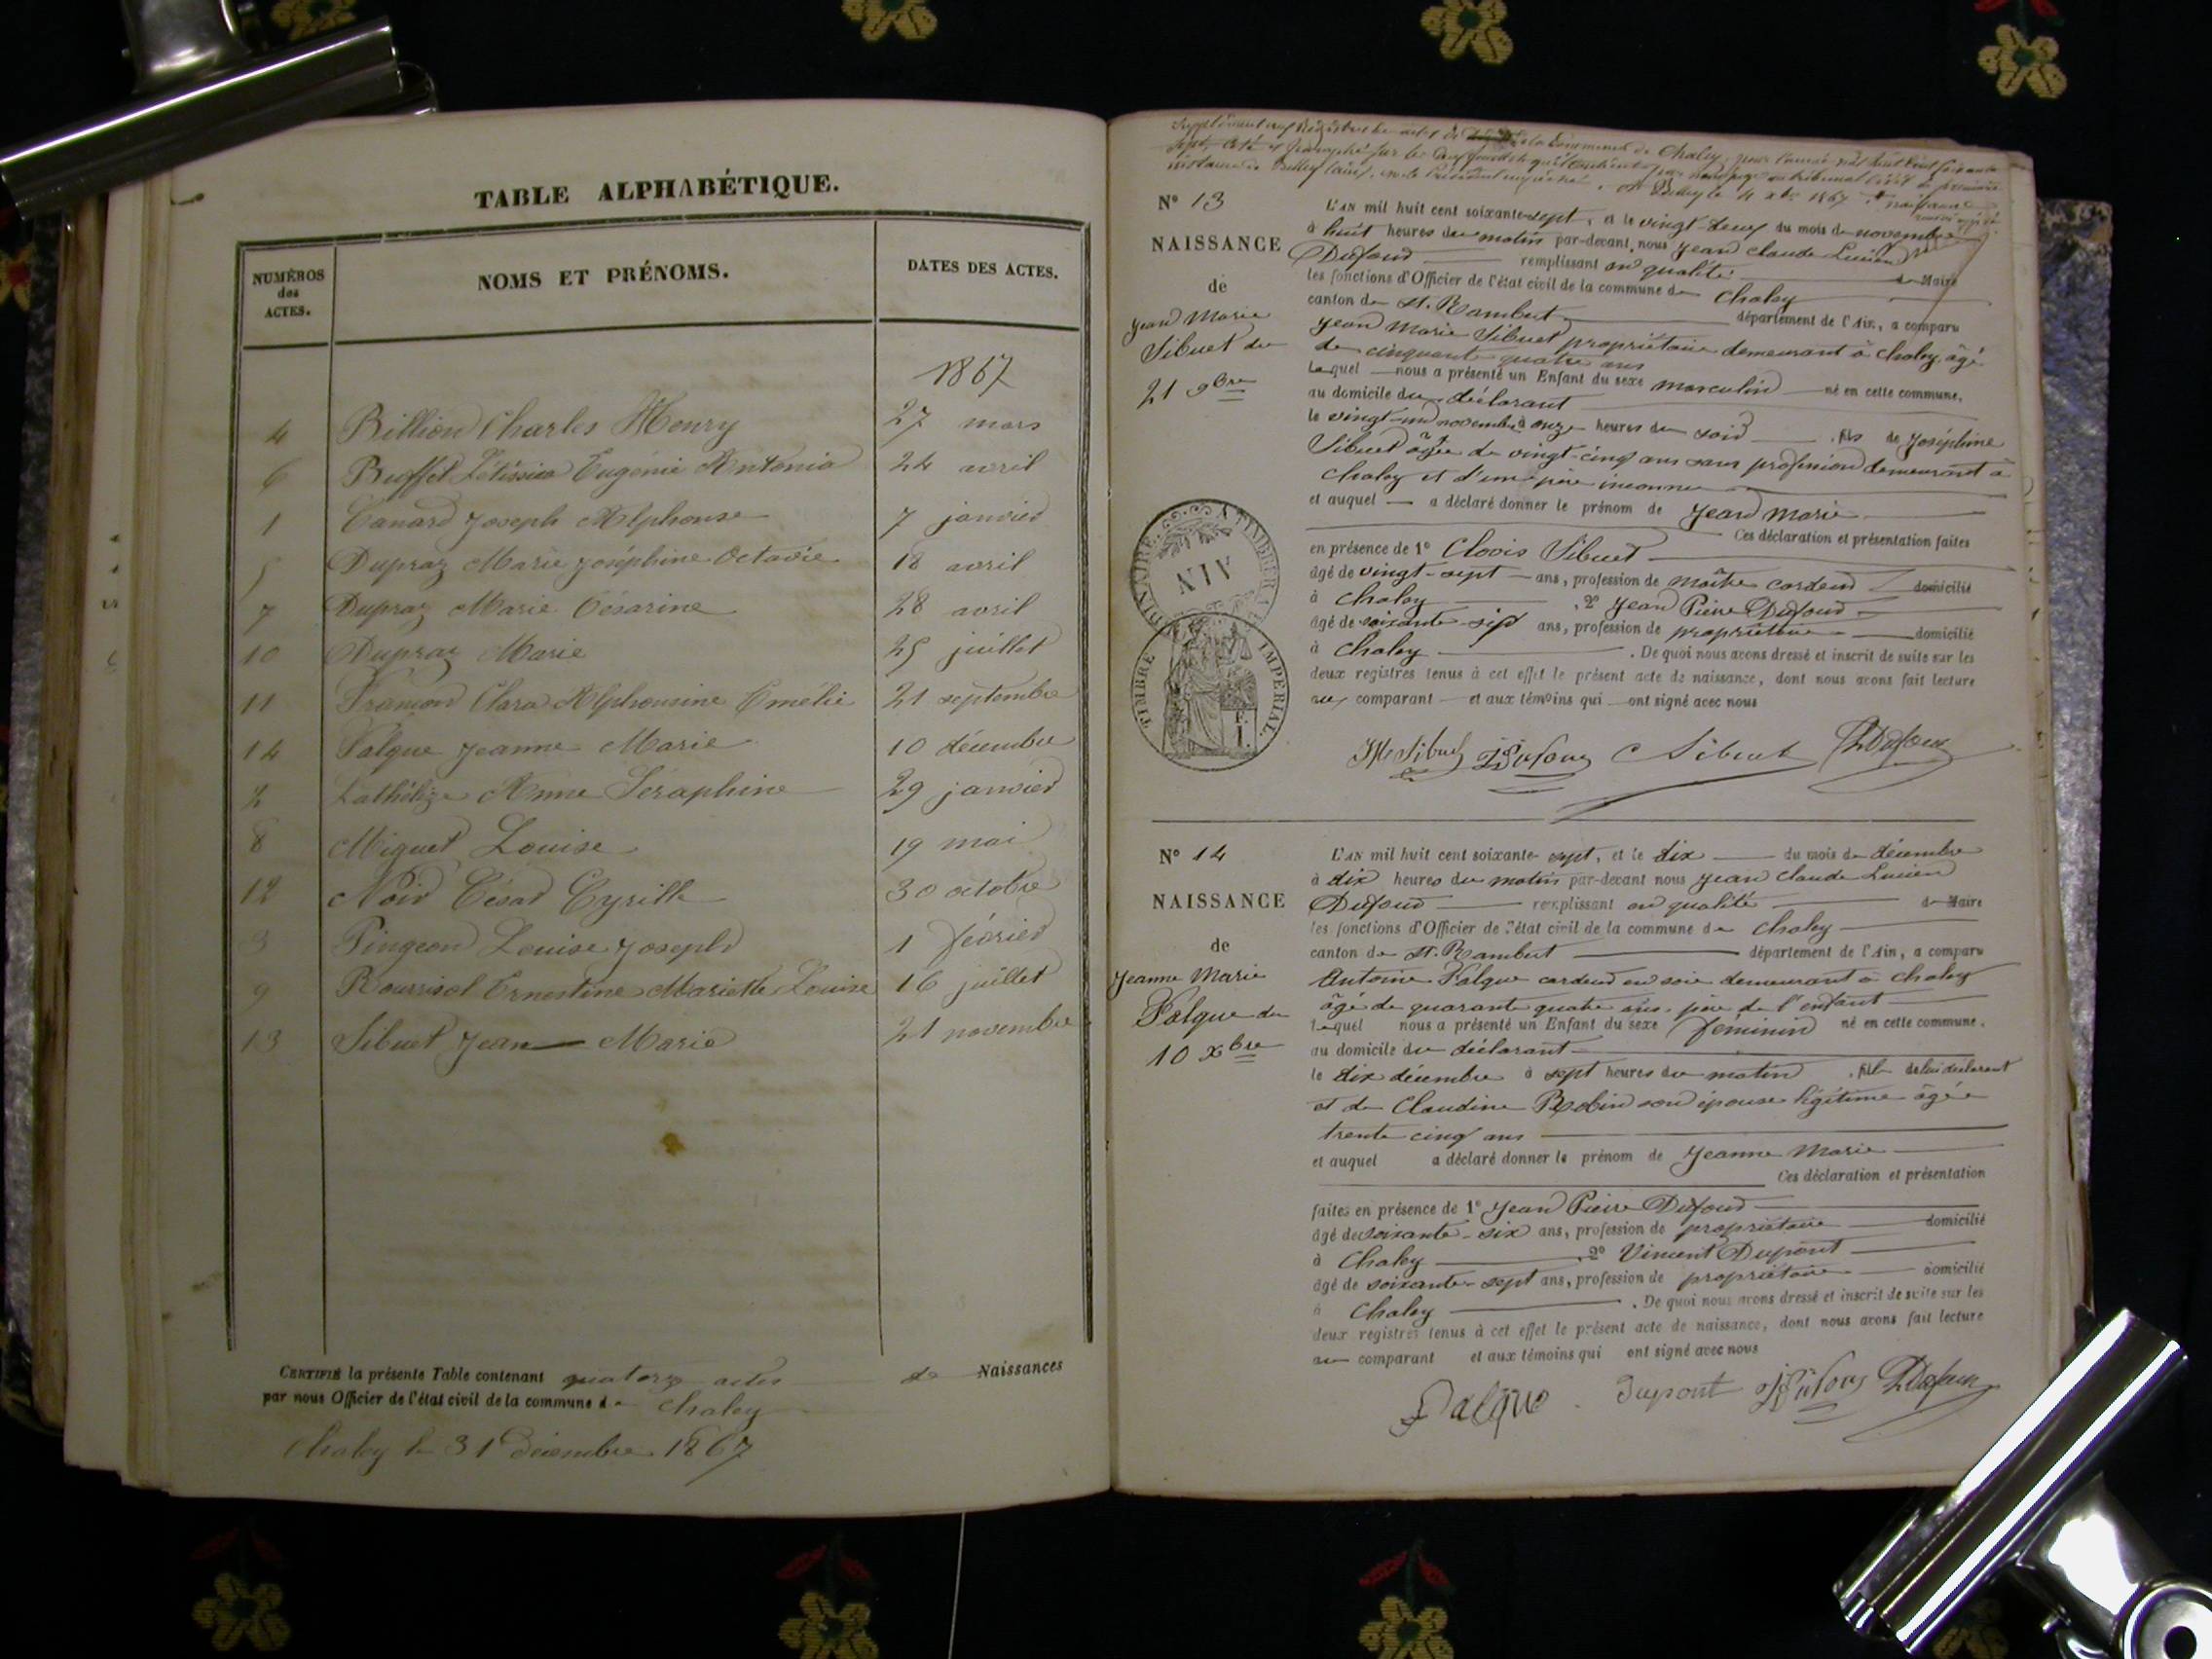 TABLE ALPHABÉTIQUE.
NUMÉROS des ACTES.
NOMS ET PRÉNOMS.
DATES DES ACTES.
1867
4 Billion Charles Henry 27 mars
6 Buffet Eugénie Antonia 24 avril
1 Canard Joseph Alphonse 7 janvier
5 Dupraz Marie Joséphine Octavie 18 avril
7 Dupraz Marie Césarine 28 avril
10 Dupraz Marie 25 juillet
11 Clara Alphonsine Emélie 21 septembre
14 Falque Jeanne Marie 10 décembre
2 Anne Séraphine 29 janvier
8 Miguet Louise 19 mai
12 Noir César Cyrille 30 octobre
3 Pingeon Louise Joseph 1 février
9 Ernestine Mariette Louise 16 juillet
13 Sibuet Jean Marie 21 novembre
CERTIFIÉ la présente Table contenant quatorze actes de Naissances
par nous Officier de l'état civil de la commune de Chaley
Chaley le 31 Décembre 1867
Supplément aux Registres des actes de la Commune de Chaley, pour l'année mil huit cent soixante
sept, Coté et paraphé par les deux feuillets qu'il contient par nous juge au tribunal civil de première
instance de Belley (ain), Belley le 4 xbre 1867
N° 13
NAISSANCE
de
Jean Marie
Sibuet du
21 9bre
L'AN mil huit cent soixante-sept, et le vingt-deux du mois de novembre
à huit heures du matin par-devant nous Jean Claude Lucien
Dufour remplissant en qualité de Maire
les fonctions d'Officier de l'état civil de la commune de Chaley
canton de St. Rambert département de l'Ain, a comparu
Jean Marie Sibuet propriétaire demeurant à Chaley, âgé
de cinquante quatre ans
Lequel nous a présenté un Enfant du sexe masculin né en cette commune,
au domicile du déclarant
le vingt-un novembre à onze heures du soir, fils de Joséphine
Sibuet âgée de vingt-cinq ans sans profession demeurant à
Chaley et d'un père inconnu
et auquel a déclaré donner le prénom de Jean Marie
Ces déclaration et présentation faites
en présence de 1° Clovis Sibuet
âgé de vingt-sept ans, profession de maître cardeur domicilié
à Chaley, 2° Jean Pierre Dufour
âgé de soixante-six ans, profession de propriétaire domicilié
à Chaley. De quoi nous avons dressé et inscrit de suite sur les
deux registres tenus à cet effet le présent acte de naissance, dont nous avons fait lecture
aux comparant et aux témoins qui ont signé avec nous
JM Sibuet JPDufour C Sibuet LDufour
TIMBRE IMPÉRIAL.
AIN
N° 14
NAISSANCE
de
Jeanne Marie
Falque du
10 xbre
L'AN mil huit cent soixante-sept, et le dix du mois de décembre
à dix heures du matin par-devant nous Jean Claude Lucien
Dufour remplissant en qualité de Maire
les fonctions d'Officier de l'état civil de la commune de Chaley
canton de St. Rambert département de l'Ain, a comparu
Antoine Falque cardeur en soie demeurant à Chaley
âgé de quarante quatre ans père de l'enfant
Lequel nous a présenté un Enfant du sexe féminin né en cette commune,
au domicile du déclarant
le dix décembre à sept heures du matin, fille de lui déclarant
et de Claudine Robin son épouse légitime âgée
trente cinq ans
et auquel a déclaré donner le prénom de Jeanne Marie
Ces déclaration et présentation
faites en présence de 1° Jean Pierre Dufour
âgé de soixante-six ans, profession de propriétaire domicilié
à Chaley, 2° Vincent Dupont
âgé de soixante-sept ans, profession de propriétaire domicilié
à Chaley. De quoi nous avons dressé et inscrit de suite sur les
deux registres tenus à cet effet le présent acte de naissance, dont nous avons fait lecture
au comparant et aux témoins qui ont signé avec nous
Falque Dupont JPDufour LDufour